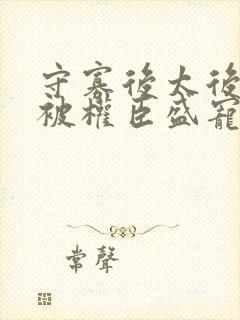 守寡後太後
被權臣盛寵
常聲